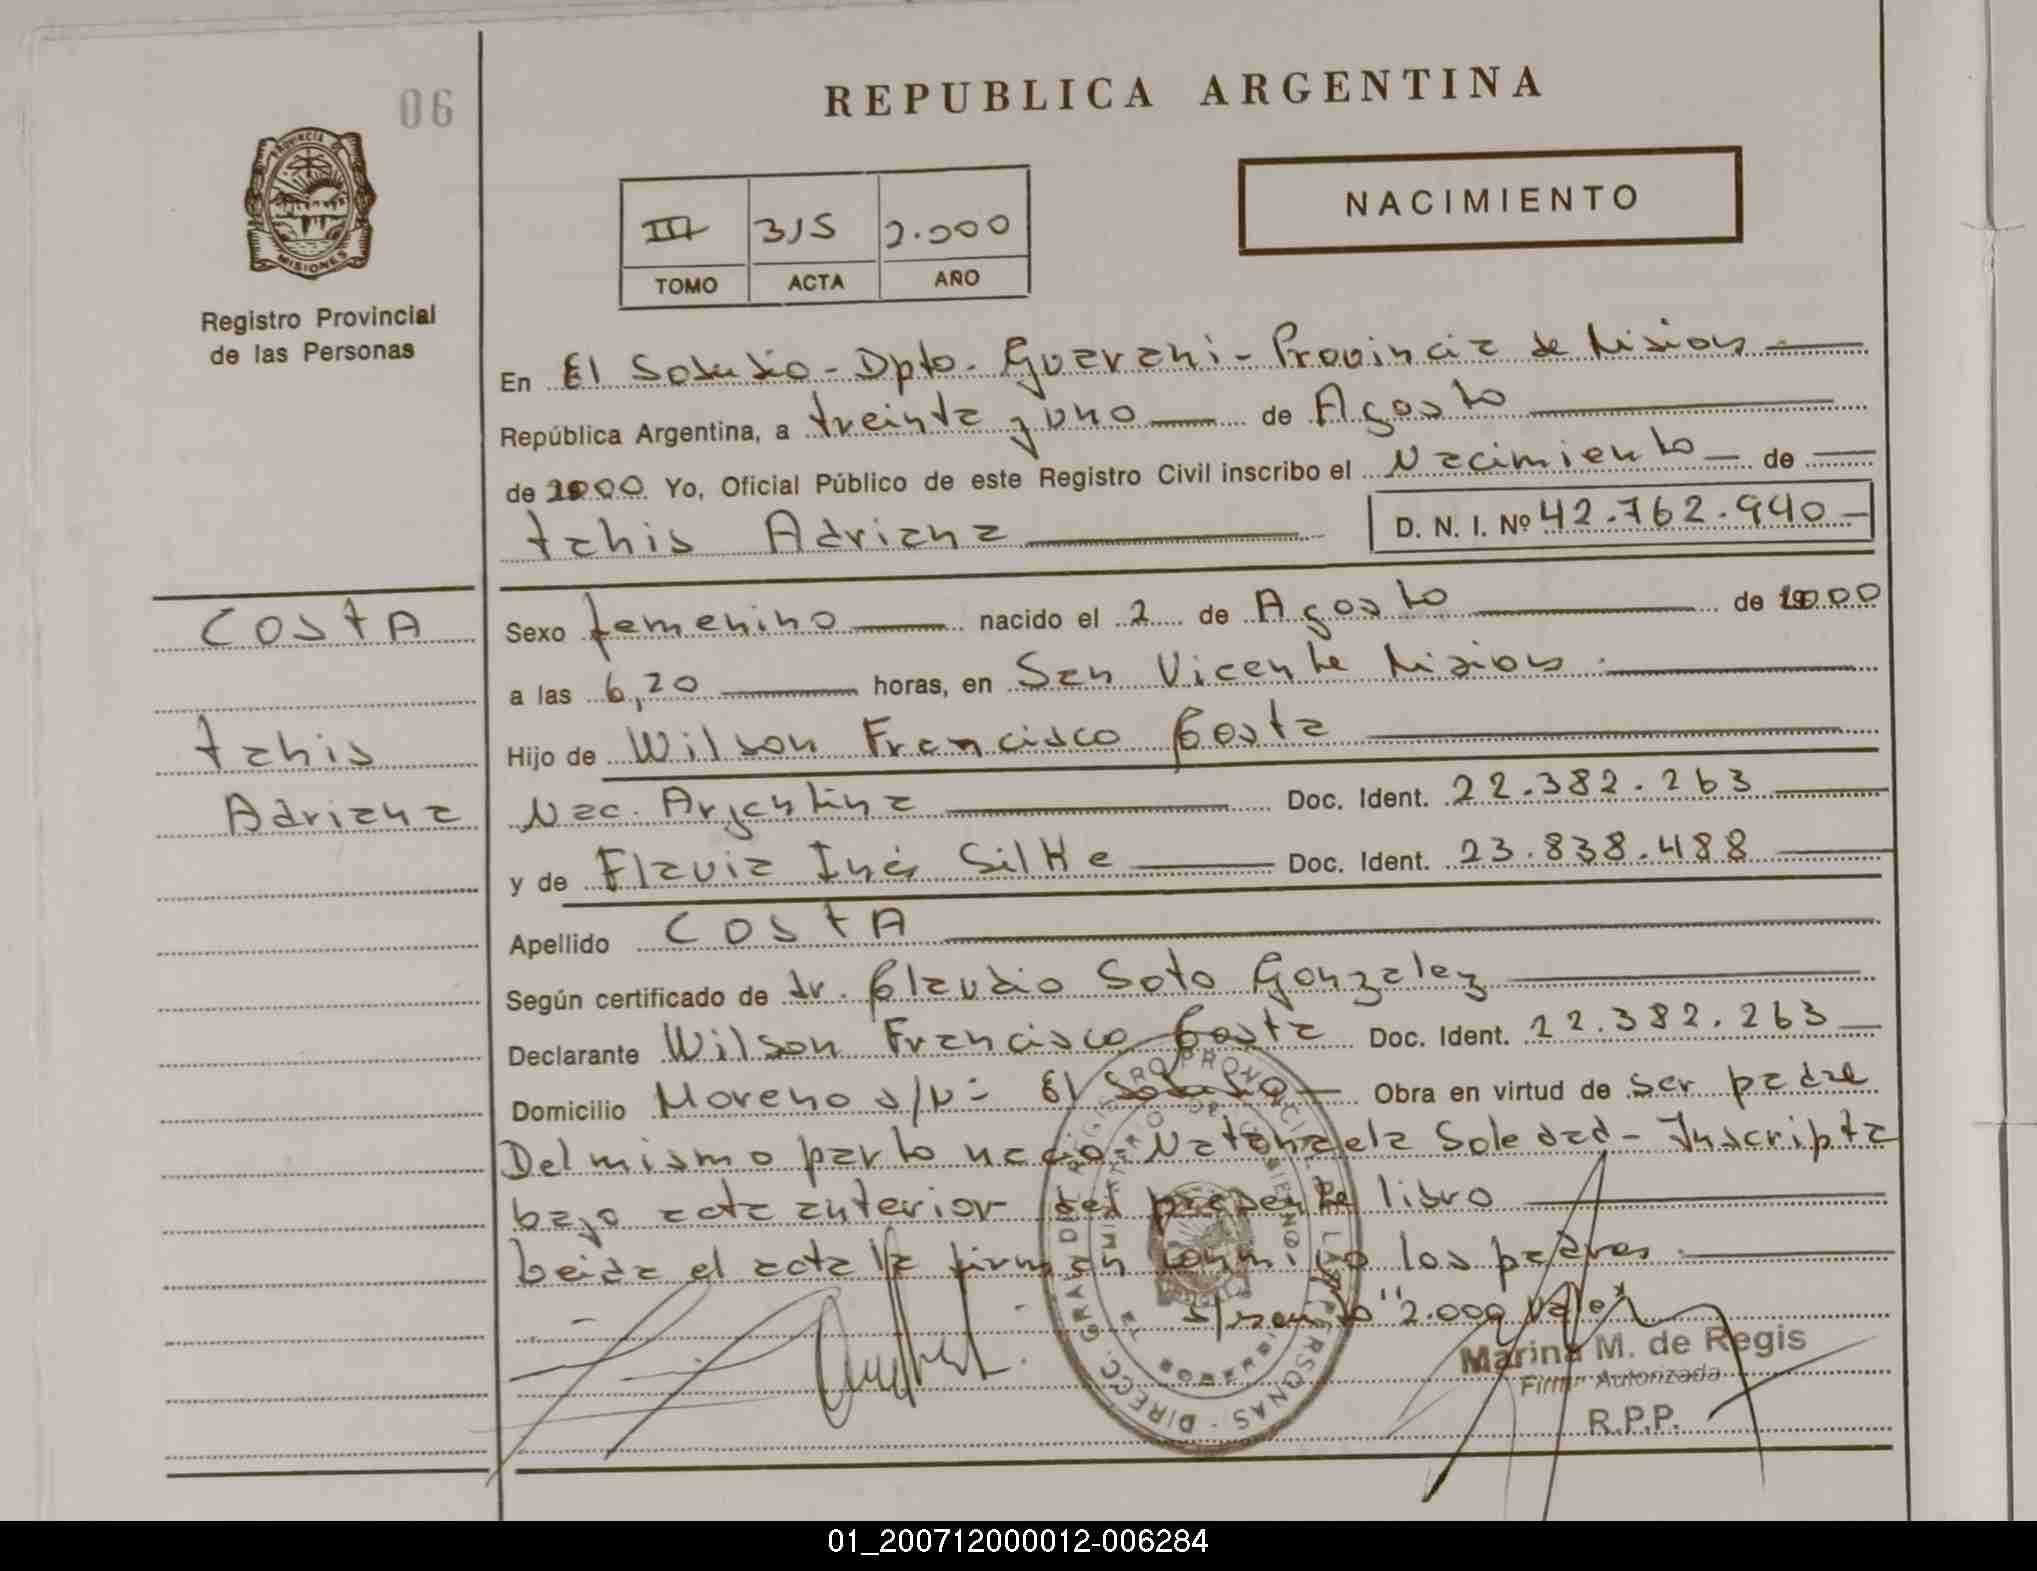 06
REPUBLICA ARGENTINA
NACIMIENTO
PROVINCIA D
MISIONES
III 315 2.000
TOMO ACTA AÑO
Registro Provincial
de las Personas
En El Soberbio - Dpto. Guarani - Provincia de Misiones
República Argentina, a treinta y uno de Agosto
de 2000 Yo, Oficial Público de este Registro Civil inscribo el Nacimiento de
tahis Adriana D. N. I. Nº 42.762.940
COSTA
tahis
Adriana
Sexo femenino nacido el 2 de Agosto de 2000
a las 6,20 horas, en San Vicente Misiones.
Hijo de Wilson Francisco Costa
Nac. Argentina Doc. Ident. 22.382.263
y de Flavia Inés Doc. Ident. 23.838.488
Apellido COSTA
Según certificado de dr. Claudio Soto Gonzalez
Declarante Wilson Francisco Costa Doc. Ident. 22.382.263
Domicilio Moreno s/n - El Soberbio Obra en virtud de ser padre
Del mismo parto nació Soledad - Inscripta
bajo acta anterior del presente libro
Leida el acta la firman conmigo los padres.
"2.000 vale"
Marina M. de Regis
Firma Autorizada
R.P.P.
DIRECC. GRAL. DEL REGISTRO PROVINCIAL DE LAS PERSONAS
MINISTERIO DE GOBIERNO
01_200712000012-006284